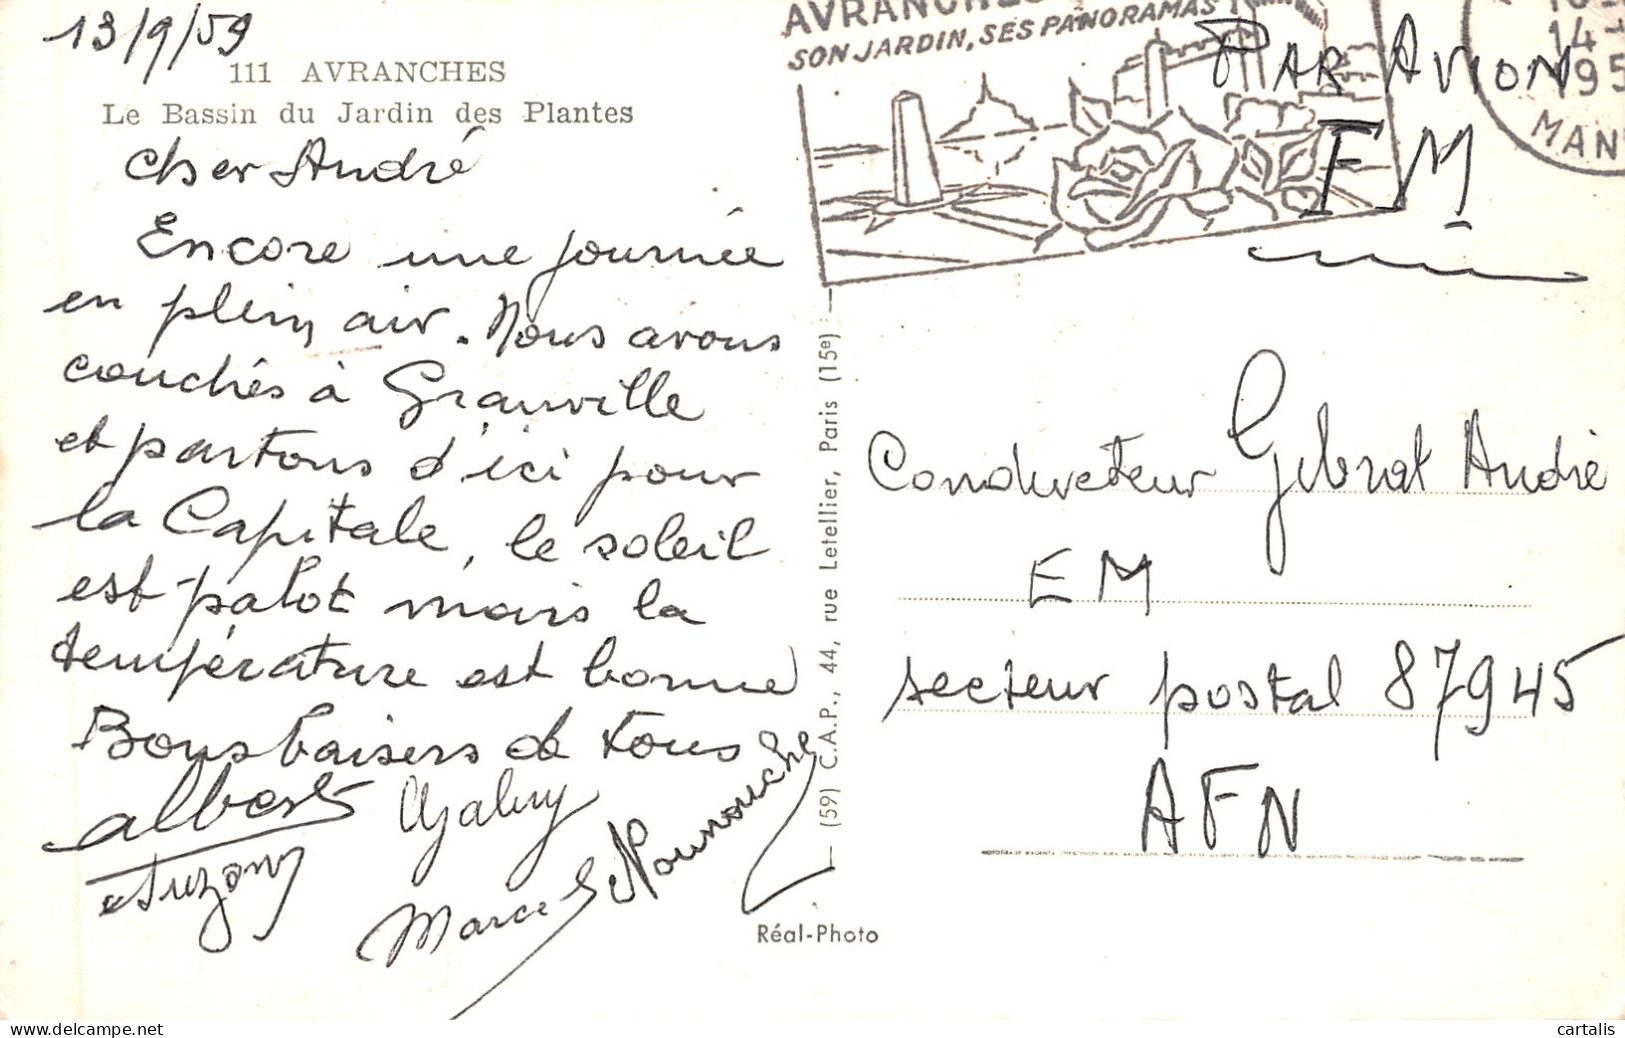 13/9/59
111 AVRANCHES
Le Bassin du Jardin des Plantes
Cher André
Encore une journée
en plein air. Nous avons
couchés à Granville
et partons d'ici pour
la Capitale, le soleil
est palot mais la
température est bonne
Bons baisers de tous
Albert Gaby
Suzon
Marcel Nounouche
(59) C.A.P., 44, rue Letellier, Paris (15e)
Réal-Photo
AVRANCHES
SON JARDIN, SES PANORAMAS
14-
195
MAN
PAR AVION
FM
Conducteur Gibrat André
EM
secteur postal 87945
AFN
cartalis
delcampe.net